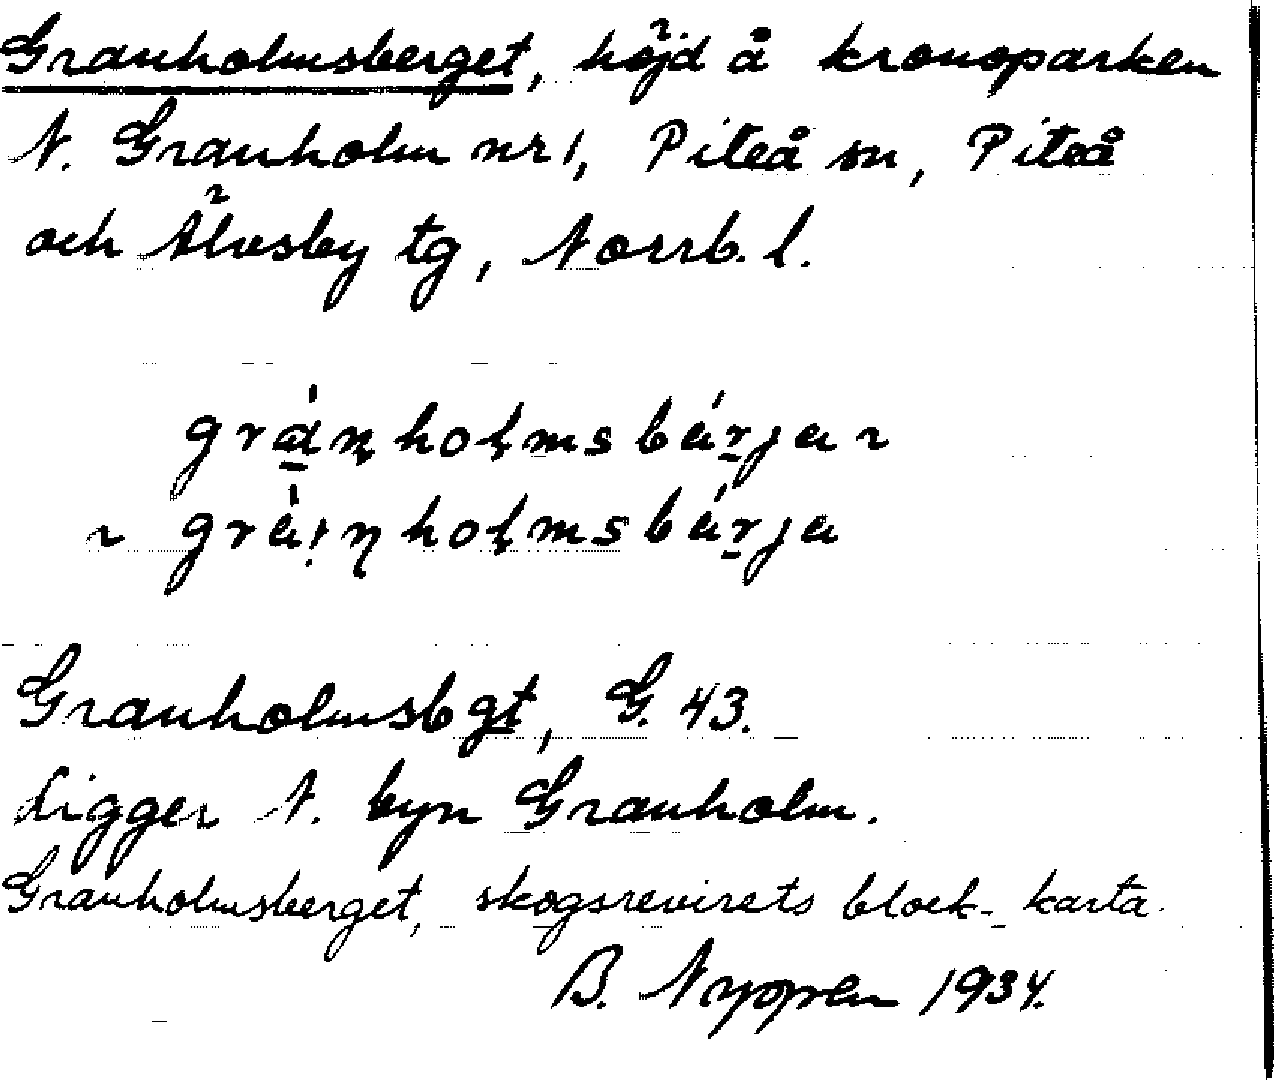 Granholmsberget, höjd å kronoparken
N. Granholm nr 1, Piteå sn, Piteå
och Älvsby tg, Norrb. l.
Granholmsbgt, G. 43.
Ligger N. byn Granholm.
Granholmsberget, skogsrevirets block-karta.
B. Nyppen 1934.